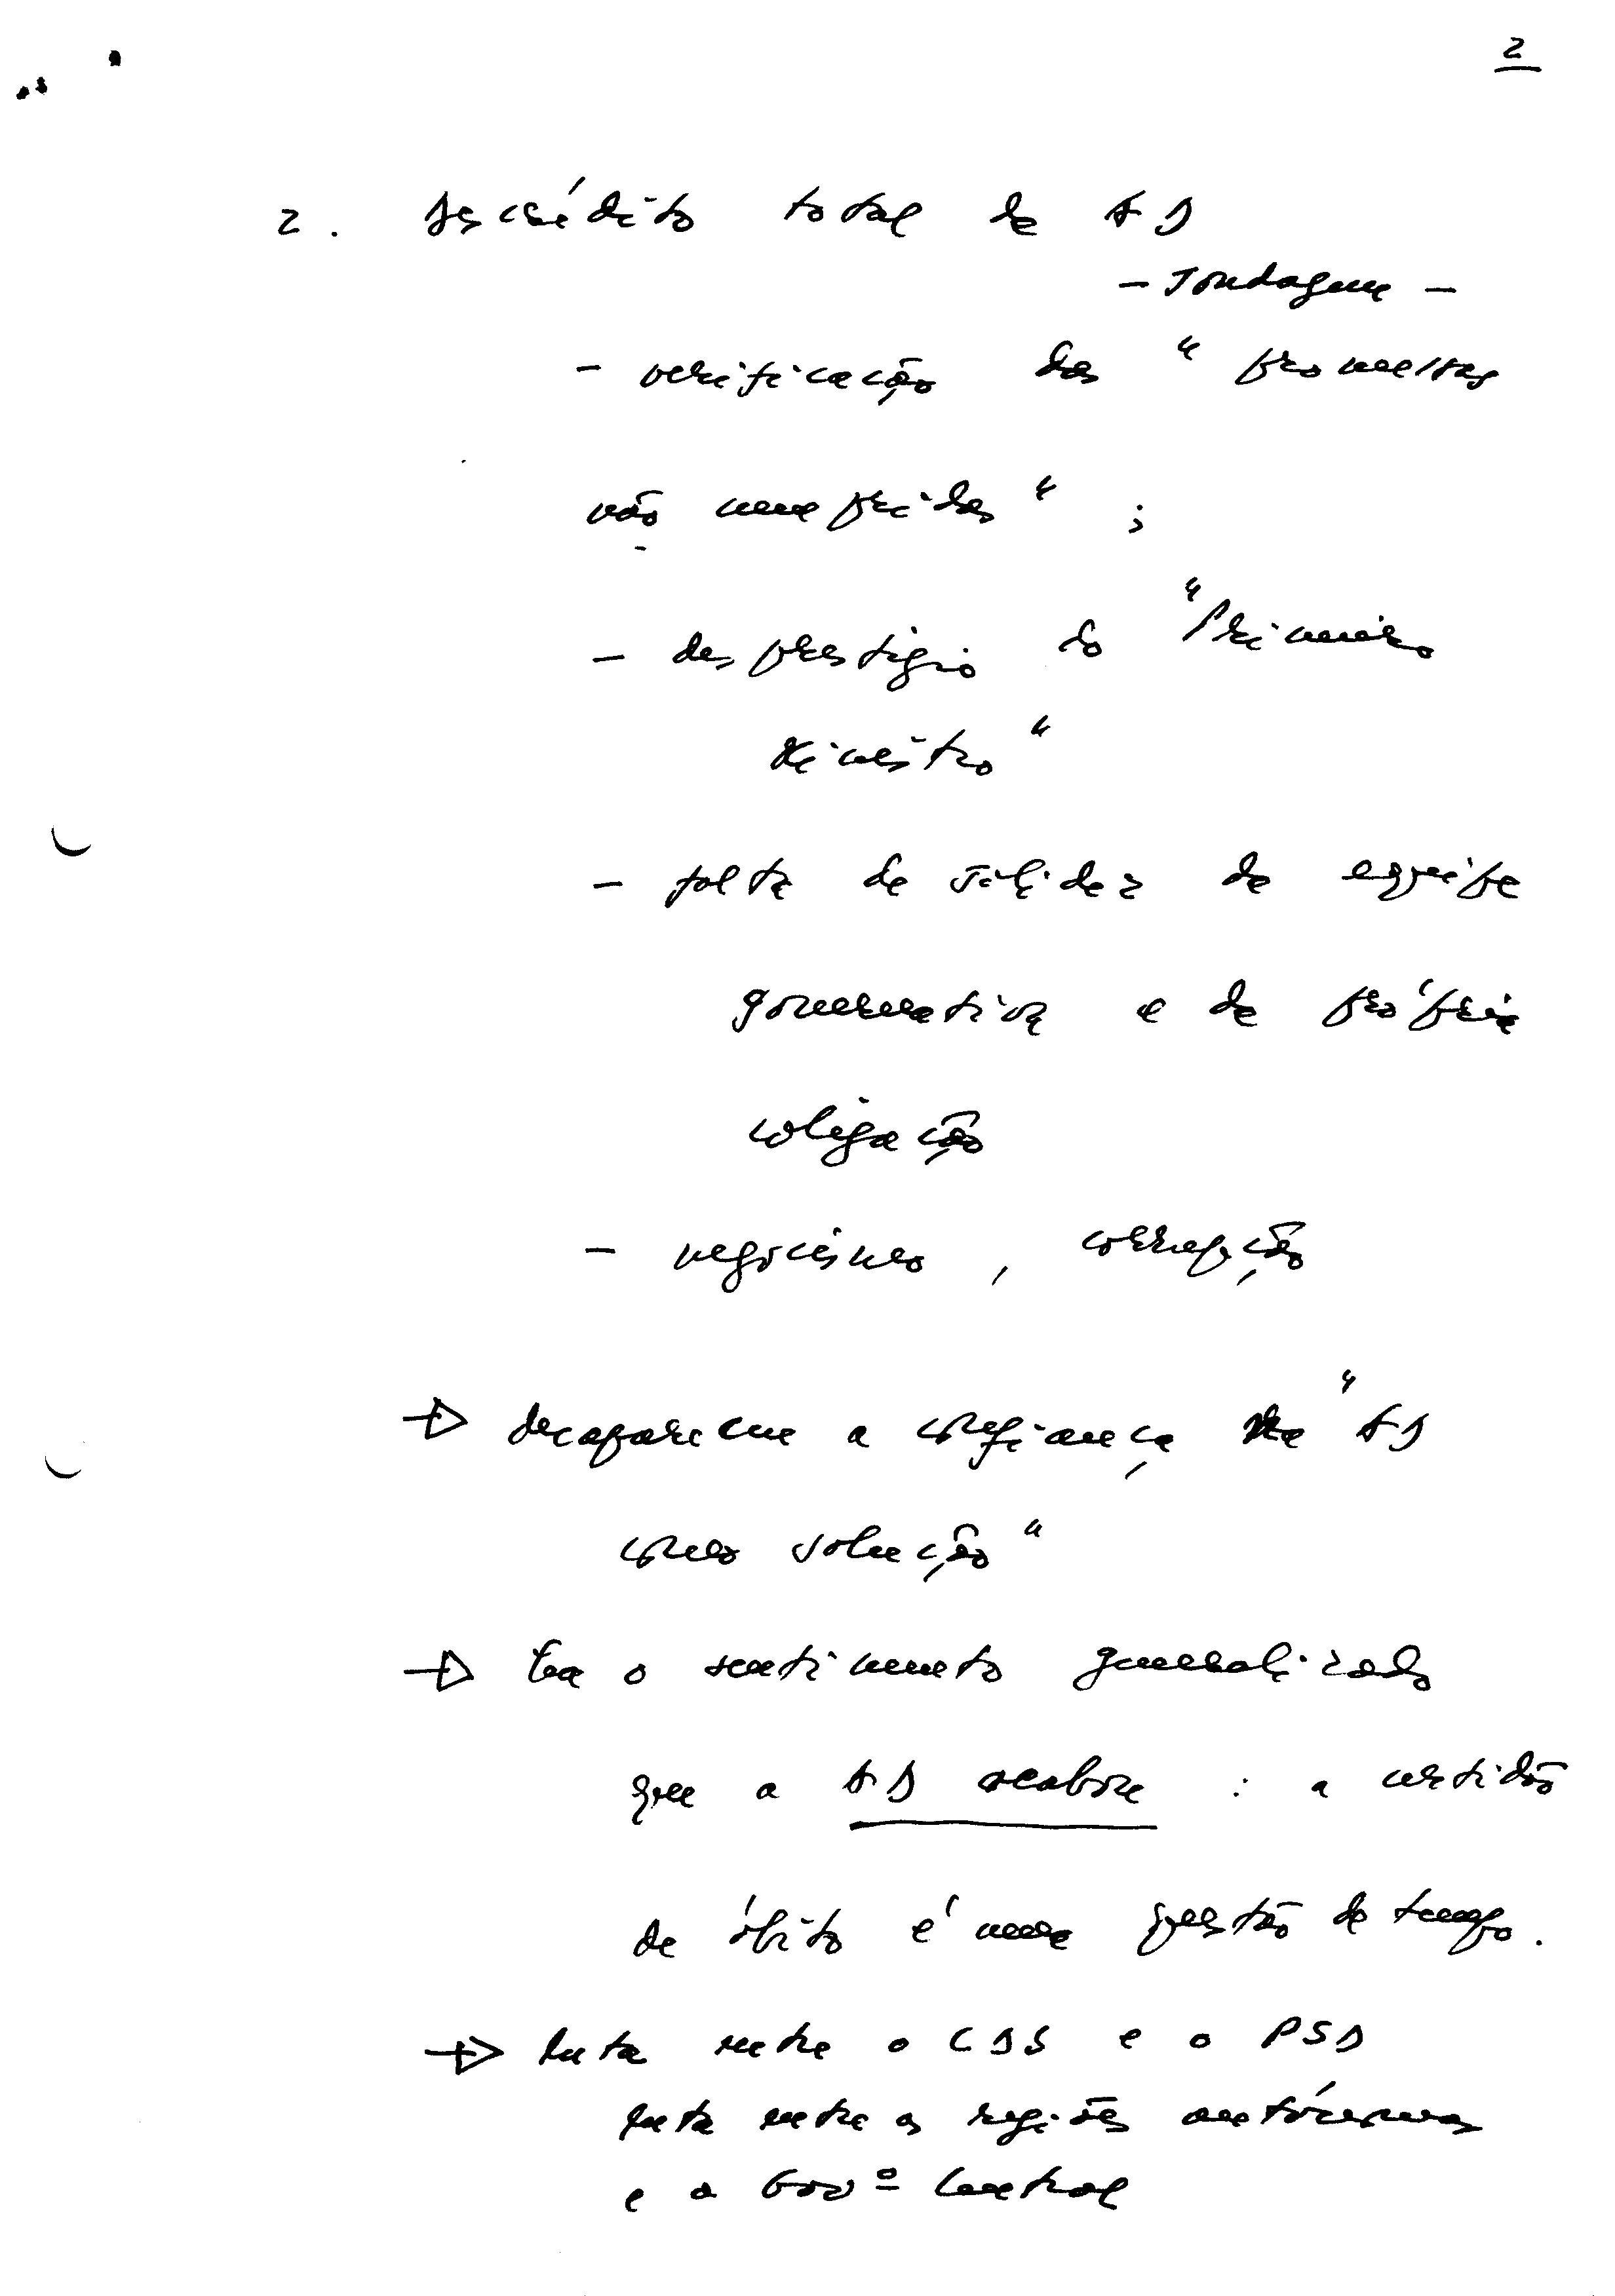 2
2. Descrédito total da AD
- Sondagem -
- verificação das "promessas
não cumpridas";
- desprestígio do "Primeiro
Ministro"
- falta de solidez da equipe
governativa e da própria
coligação
- negocismo, corrupção
→ desapareceu a confiança na "AD
como solução"
→ há o sentimento generalizado
que a AD acabou: a certidão
de óbito é uma questão de tempo.
→ luta entre o CDS e o PSD
luta entre as regiões autónomas
e o Govº Central